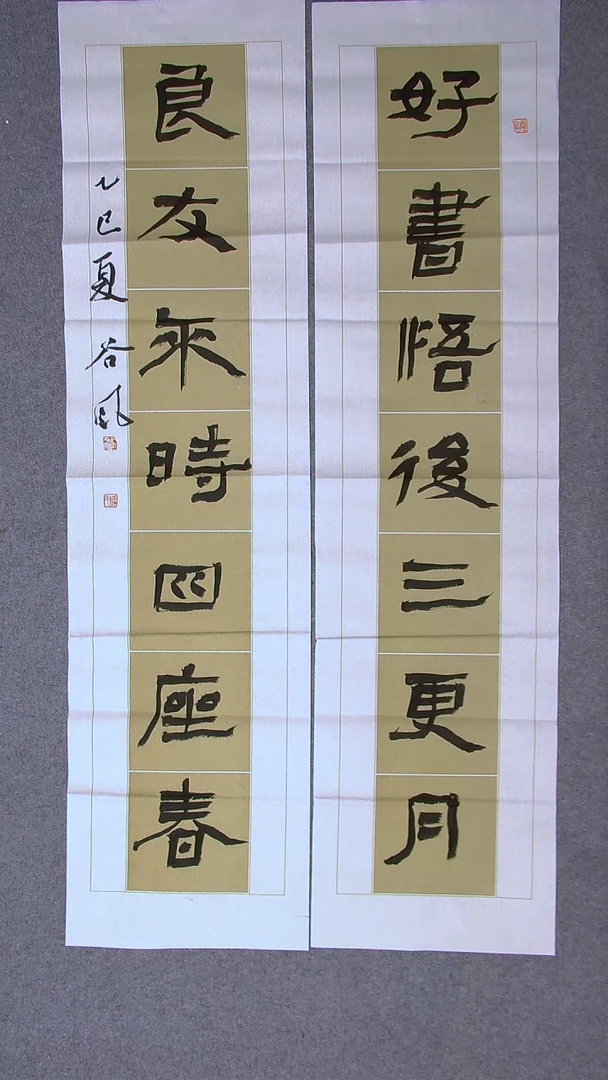 好書悟後三更月
良友来時四座春
乙巳夏 谷風